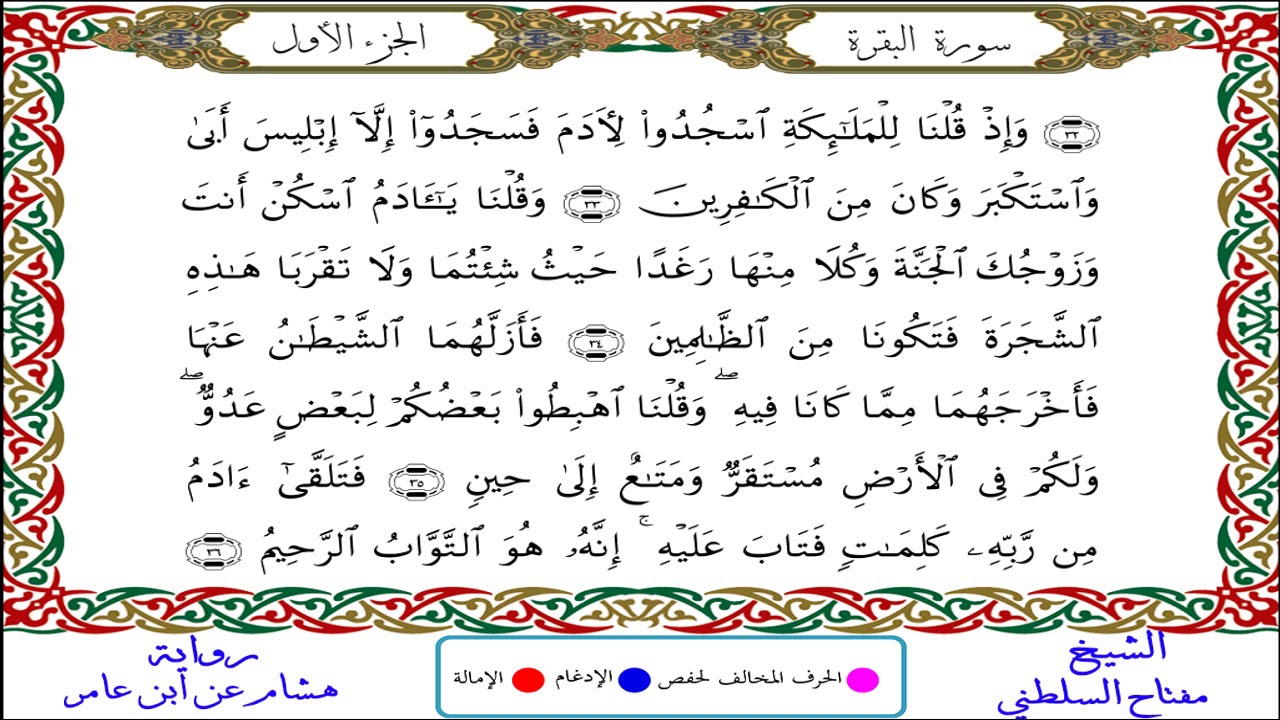 سورة البقرة
الجزء الأول
٣٢ وَإِذْ قُلْنَا لِلْمَلَٰٓئِكَةِ ٱسْجُدُوا۟ لِأٓدَمَ فَسَجَدُوٓا۟ إِلَّآ إِبْلِيسَ أَبَىٰ
وَٱسْتَكْبَرَ وَكَانَ مِنَ ٱلْكَٰفِرِينَ ٣٣ وَقُلْنَا يَٰٓـَٔادَمُ ٱسْكُنْ أَنتَ
وَزَوْجُكَ ٱلْجَنَّةَ وَكُلَا مِنْهَا رَغَدًا حَيْثُ شِئْتُمَا وَلَا تَقْرَبَا هَٰذِهِ
ٱلشَّجَرَةَ فَتَكُونَا مِنَ ٱلظَّٰلِمِينَ ٣٤ فَأَزَلَّهُمَا ٱلشَّيْطَٰنُ عَنْهَا
فَأَخْرَجَهُمَا مِمَّا كَانَا فِيهِ ۖ وَقُلْنَا ٱهْبِطُوا۟ بَعْضُكُمْ لِبَعْضٍ عَدُوٌّ ۖ
وَلَكُمْ فِى ٱلْأَرْضِ مُسْتَقَرٌّ وَمَتَٰعٌ إِلَىٰ حِينٍ ٣٥ فَتَلَقَّىٰٓ ءَادَمُ
مِن رَّبِّهِۦ كَلِمَٰتٍ فَتَابَ عَلَيْهِ ۚ إِنَّهُۥ هُوَ ٱلتَّوَّابُ ٱلرَّحِيمُ ٣٦
الشيخ
مفتاح السلطني
الحرف المخالف لحفص الإدغام الإمالة
رواية
هشام عن ابن عامر